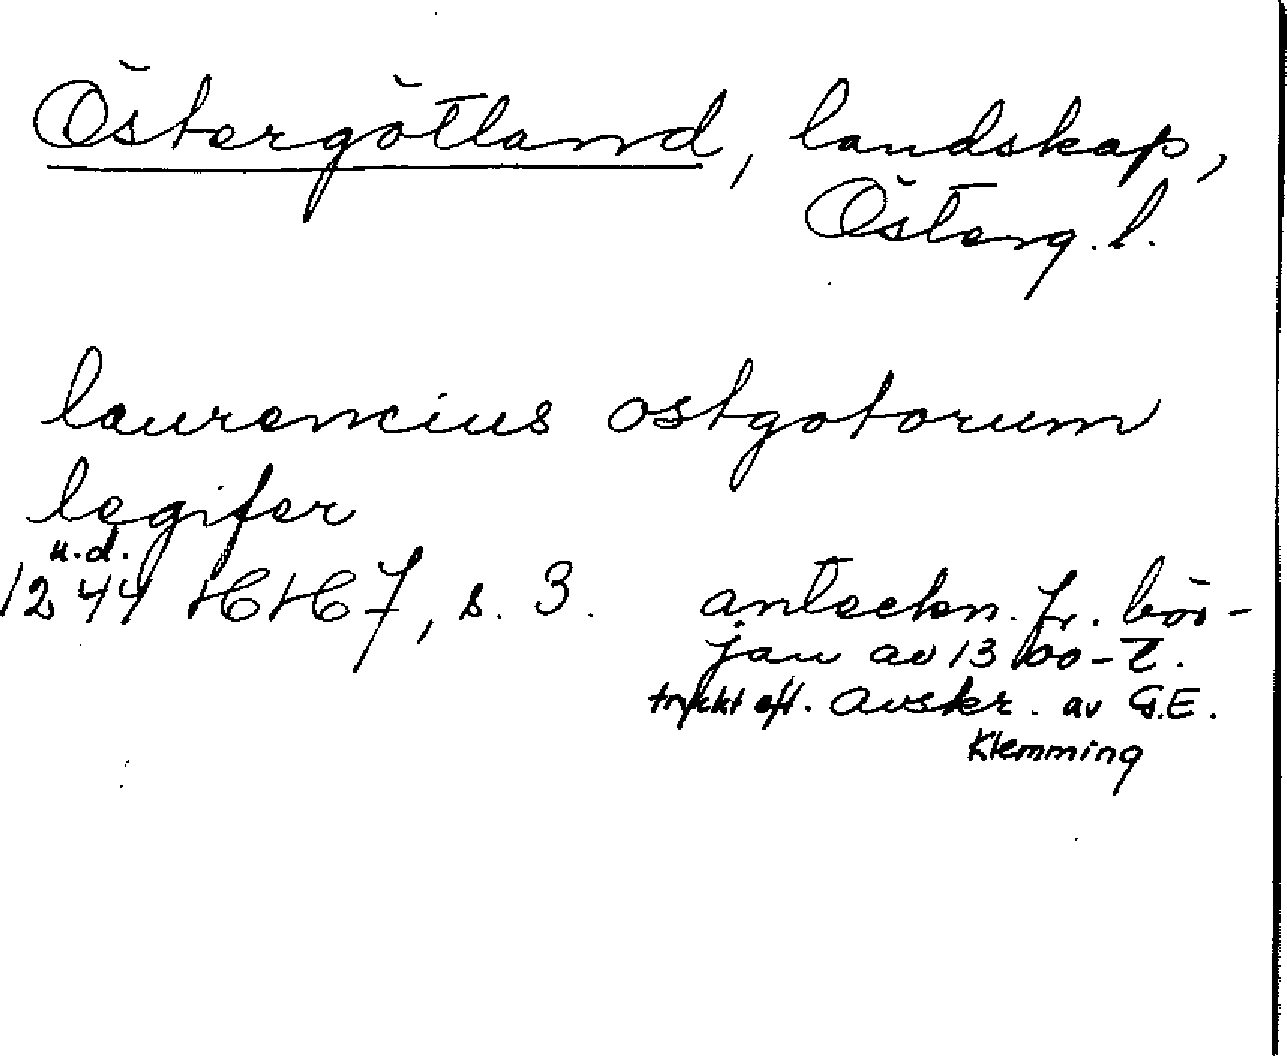 Östergötland, landskap,
Österg. l.
laurencius ostgotorum
legifer
u.d.
1244 HH 7, s. 3. anteckn. fr. bör-
jan av 1300-t.
tryckt eft. avskr. av G.E.
Klemming